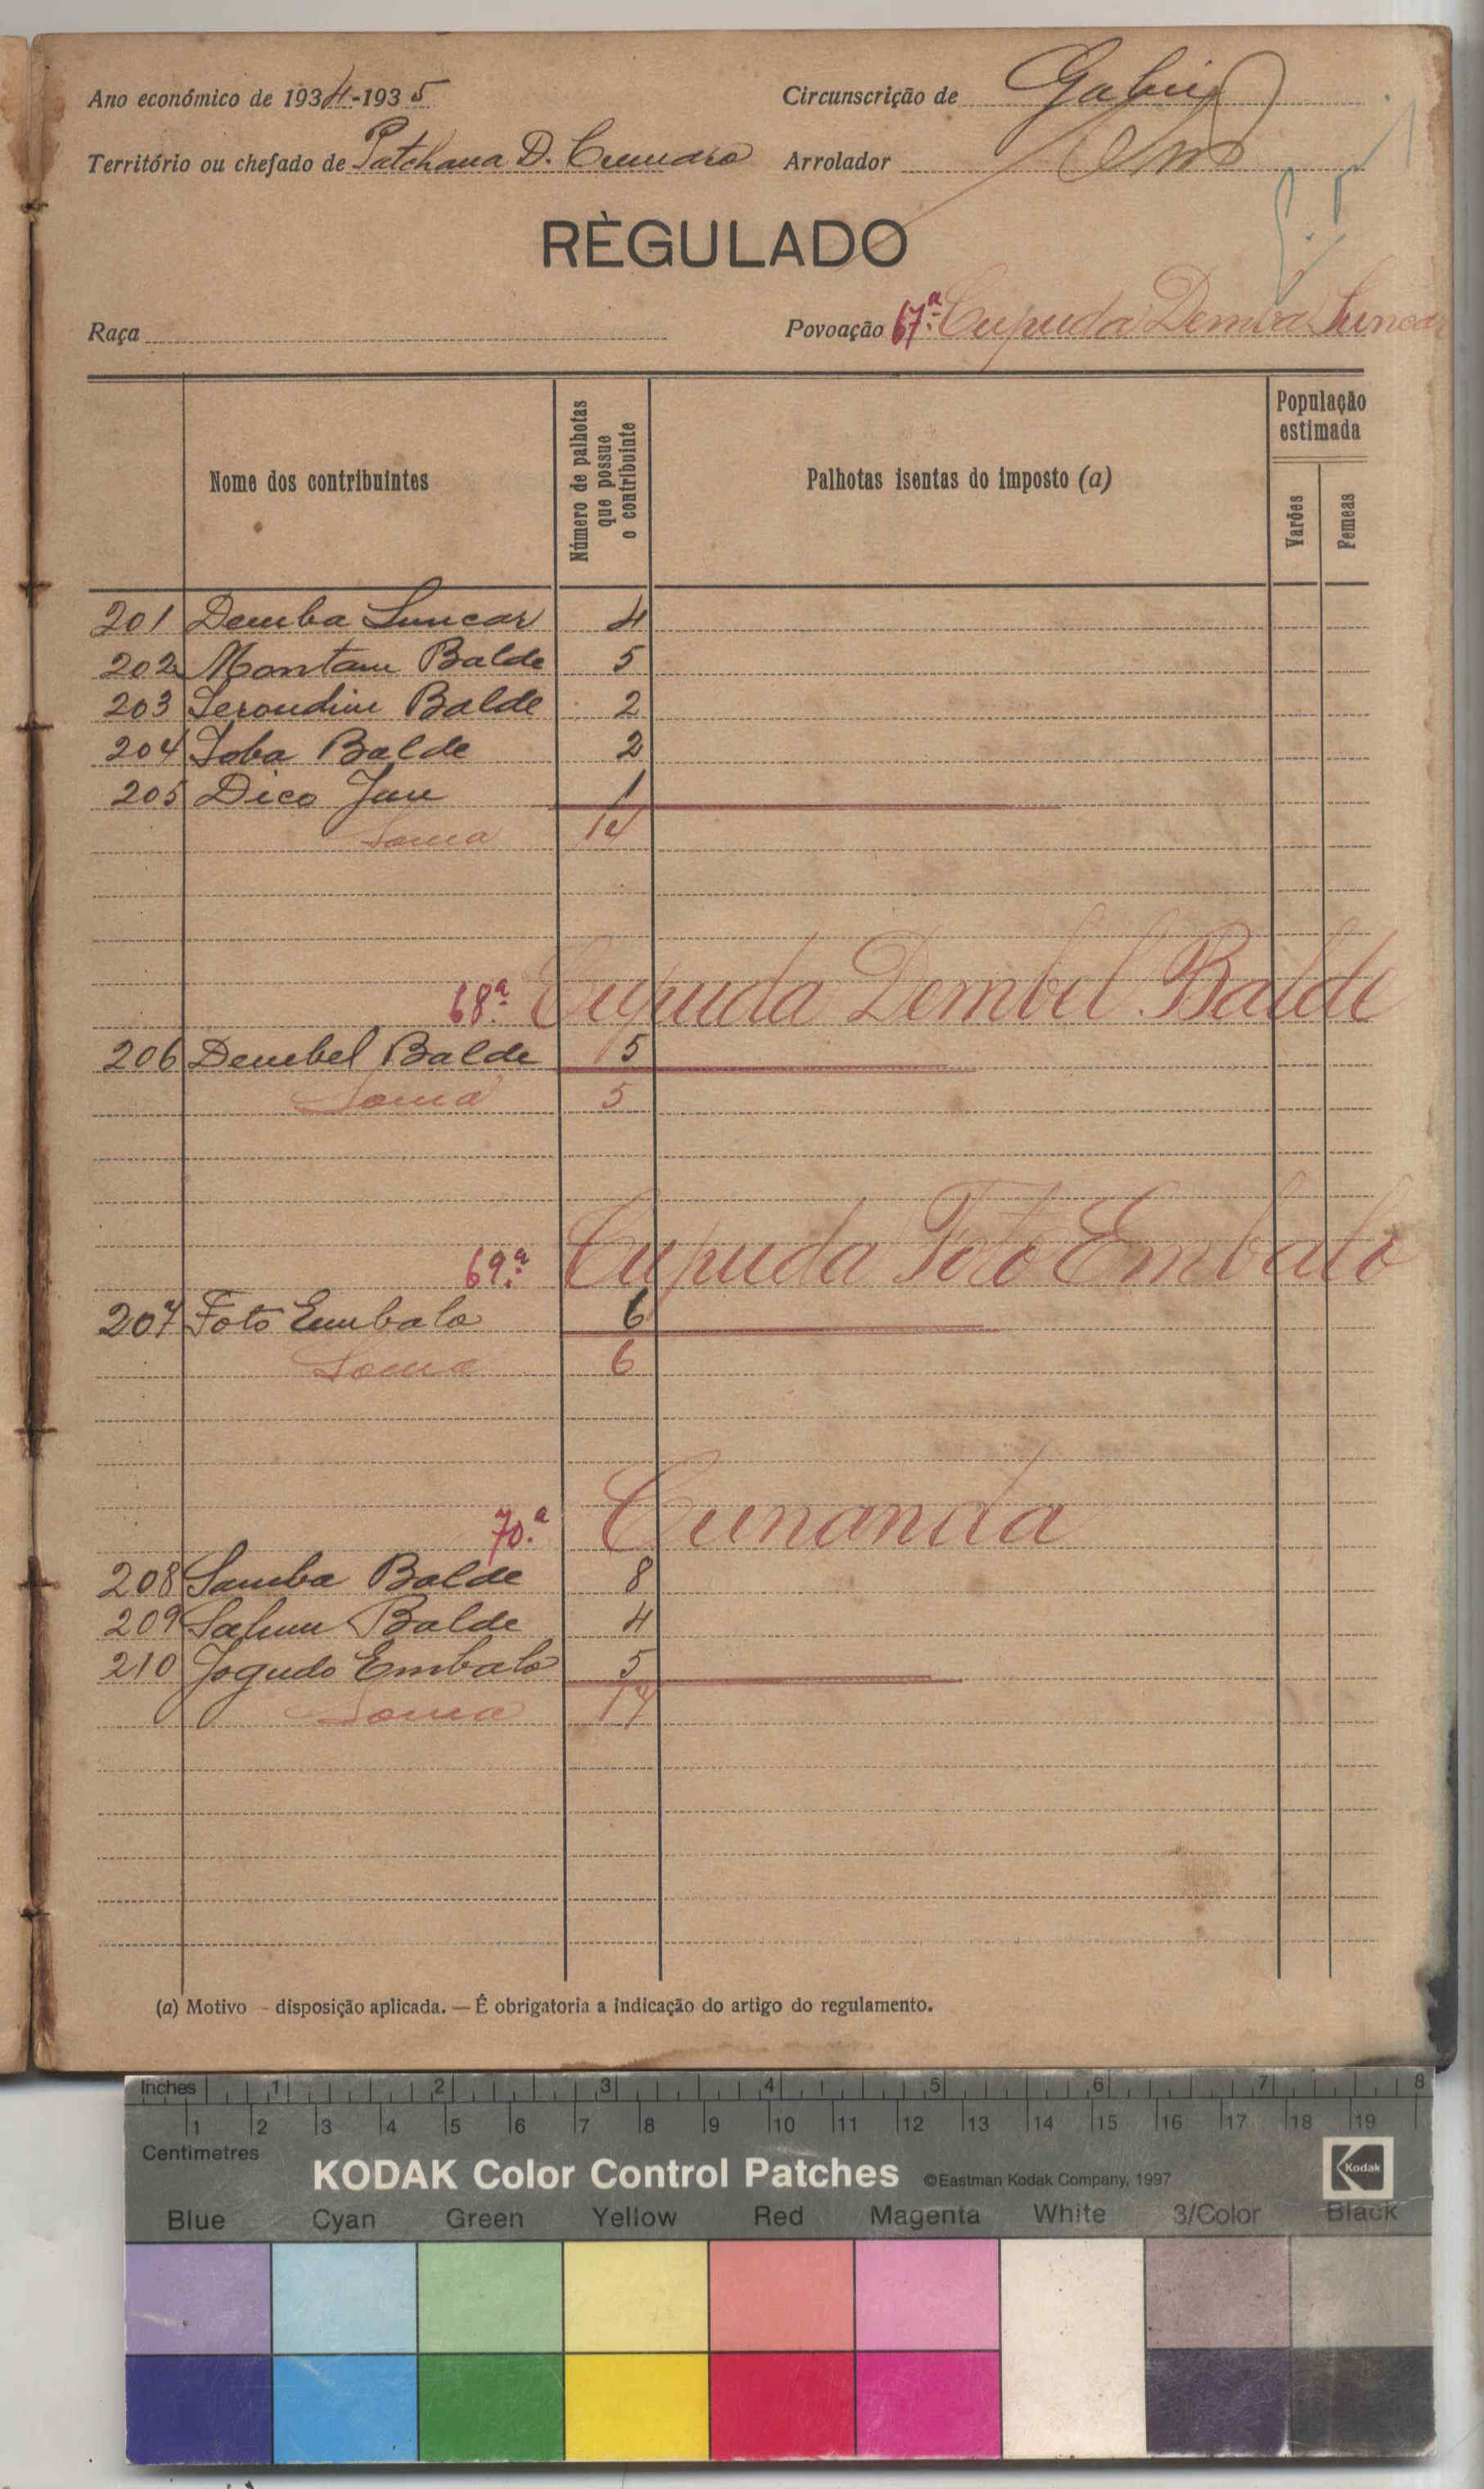 Ano económico de 1934-1935
Circunscrição de Gabú
Território ou chefado de Patchana D.
Arrolador
RÈGULADO
Raça
Povoação 67.ª Cupuda Demba Suncar
Nome dos contribuintes
Número de palhotas que possue o contribuinte
Palhotas isentas do imposto (a)
População estimada
Varões
Femeas
201 Demba Suncar 4
202 Montam Balde 5
203 Serondim Balde 2
204 Joba Balde 2
205 Dico Jau 1
Soma 14
68.ª Cupuda Dembel Balde
206 Dembel Balde 5
Soma 5
69.ª Cupuda Foto Embalo
207 Foto Embalo 6
Soma 6
70.ª Cunanda
208 Samba Balde 8
209 Balde 4
210 Jogudo Embalo 5
Soma 17
(a) Motivo - disposição aplicada. — É obrigatoria a indicação do artigo do regulamento.
Inches 1 2 3 4 5 6 7 8
1 2 3 4 5 6 7 8 9 10 11 12 13 14 15 16 17 18 19
Centimetres
KODAK Color Control Patches ©Eastman Kodak Company, 1997 Kodak
Blue Cyan Green Yellow Red Magenta White 3/Color Black